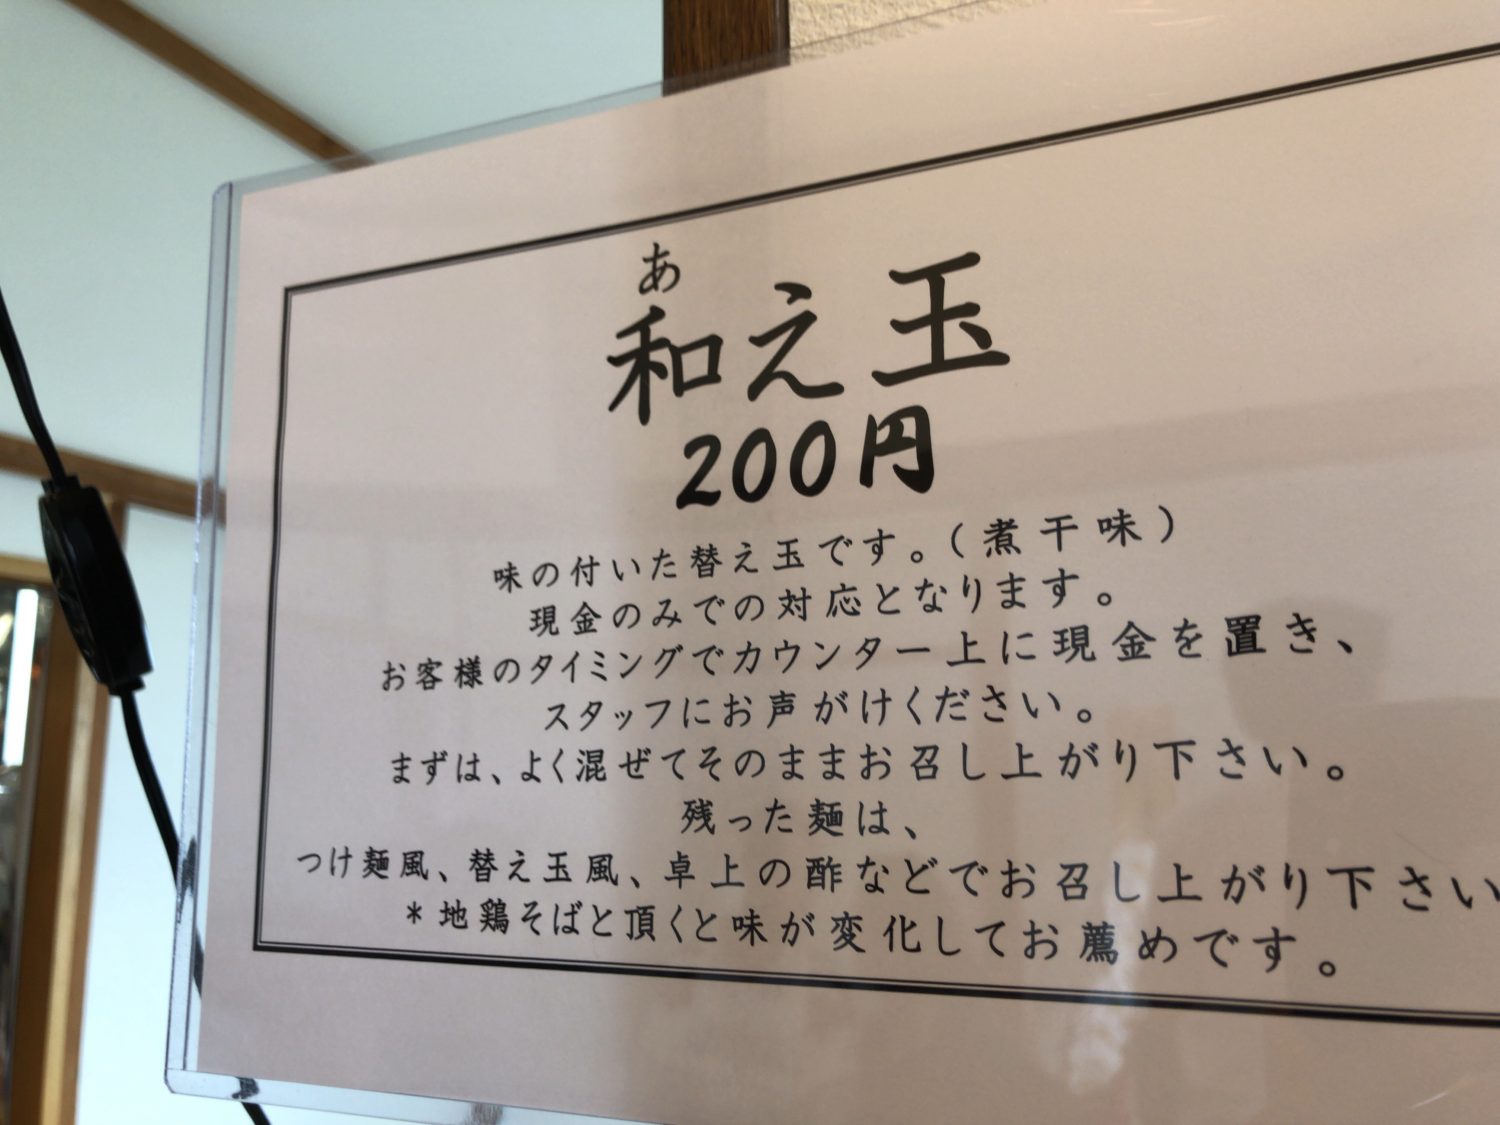 あ
和え玉
200円
味の付いた替え玉です。(煮干味)
現金のみでの対応となります。
お客様のタイミングでカウンター上に現金を置き、
スタッフにお声がけください。
まずは、よく混ぜてそのままお召し上がり下さい。
残った麺は、
つけ麺風、替え玉風、卓上の酢などでお召し上がり下さい
*地鶏そばと頂くと味が変化してお薦めです。